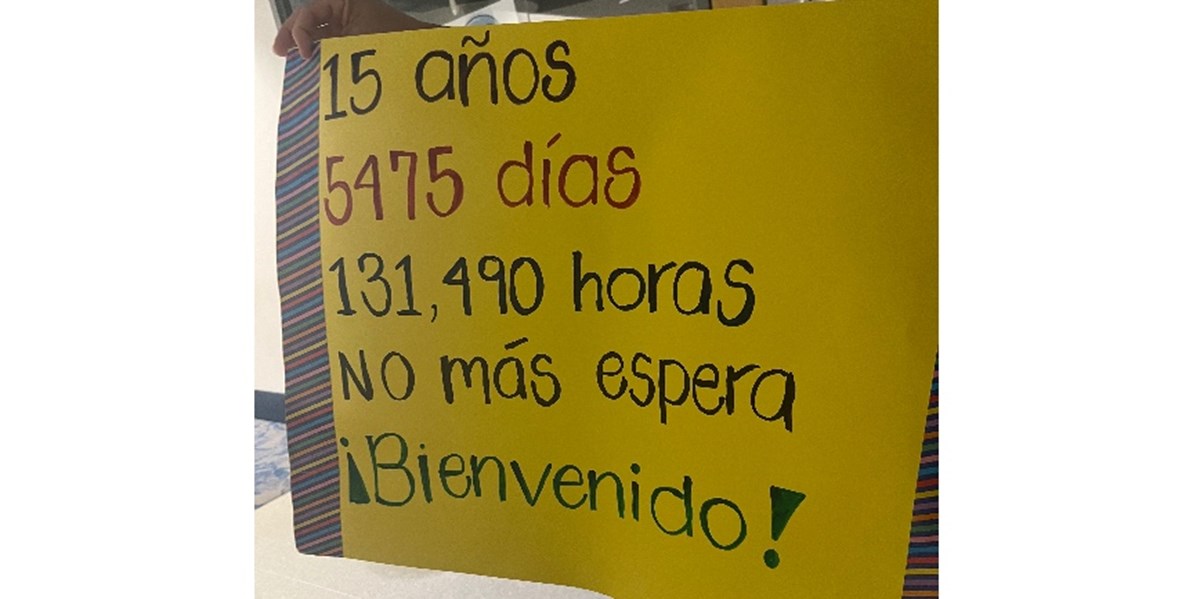 15 años
5475 días
131,490 horas
No más espera
¡Bienvenido!